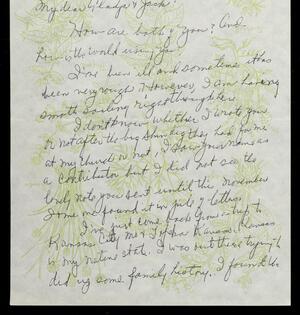 My dear Gladys & Jack:
How are both of you? And
how is the world using you?
I've been ill and sometime it has
been very rough. However, I am having
smooth sailing right through here.
I don't know whether I wrote you
or not after the big shin dig they had for me
at my church or not. I saw your names as
a contributor but I did not see the
lovely note you sent until this November
I some me found it in pile of letters
I've just come back from a trip to
Kansas City Mo & Topeka Kansas. Kansas
is my native state. I was out there trying to
dig up some family history. I found the